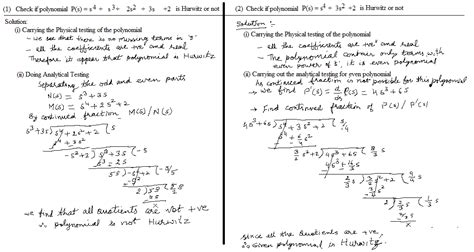 (1) Check if polynomial P(s) = s⁴ + s³ + 2s² + 3s + 2 is Hurwitz or not
Solution:-
(i) Carrying the Physical testing of the polynomial
- we see that there is no missing terms in 's'
- all the coefficients are +ve and real
Therefore it appear that polynomial is Hurwitz
(ii) Doing Analytical Testing
Separating the odd and even parts
N(s) = s³+3s
M(s) = s⁴+2s²+2
By continued fraction M(s)/N(s)
s³+3s ) s⁴+2s²+2 ( s
s⁴+3s²
-s²+2 ) s³+3s ( -s
s³-2s
5s ) -s²+2 ( -s/5
-s²
2 ) 5s ( 5/2 s
5s
x
we find that all quotients are not +ve
∴ polynomial is not Hurwitz
(2) Check if polynomial P(s) = s⁴ + 3s² + 2 is Hurwitz or not
Solution:-
(i) Carrying the Physical testing of the polynomial
- all the coefficients are +ve and real
- The polynomial contain only terms with
even power of 's', it is even polynomial
(ii) Carrying out the analytical testing for even polynomial
continued fraction is not possible for this polynomial
→ we find P'(s) = d/ds P(s) = 4s³+6s
→ Find continued fraction of P(s) / P'(s)
4s³+6s ) s⁴+3s²+2 ( s/4
s⁴+6/4 s²
3/2 s²+2 ) 4s³+6s ( 8/3 s
2/3 s ) 3/2 s²+2 ( 9/4 s
3/2 s²
2 ) 2/3 s ( 1/3 s
2/3 s
x
since all the Quotients are +ve,
∴ Given polynomial is Hurwitz.